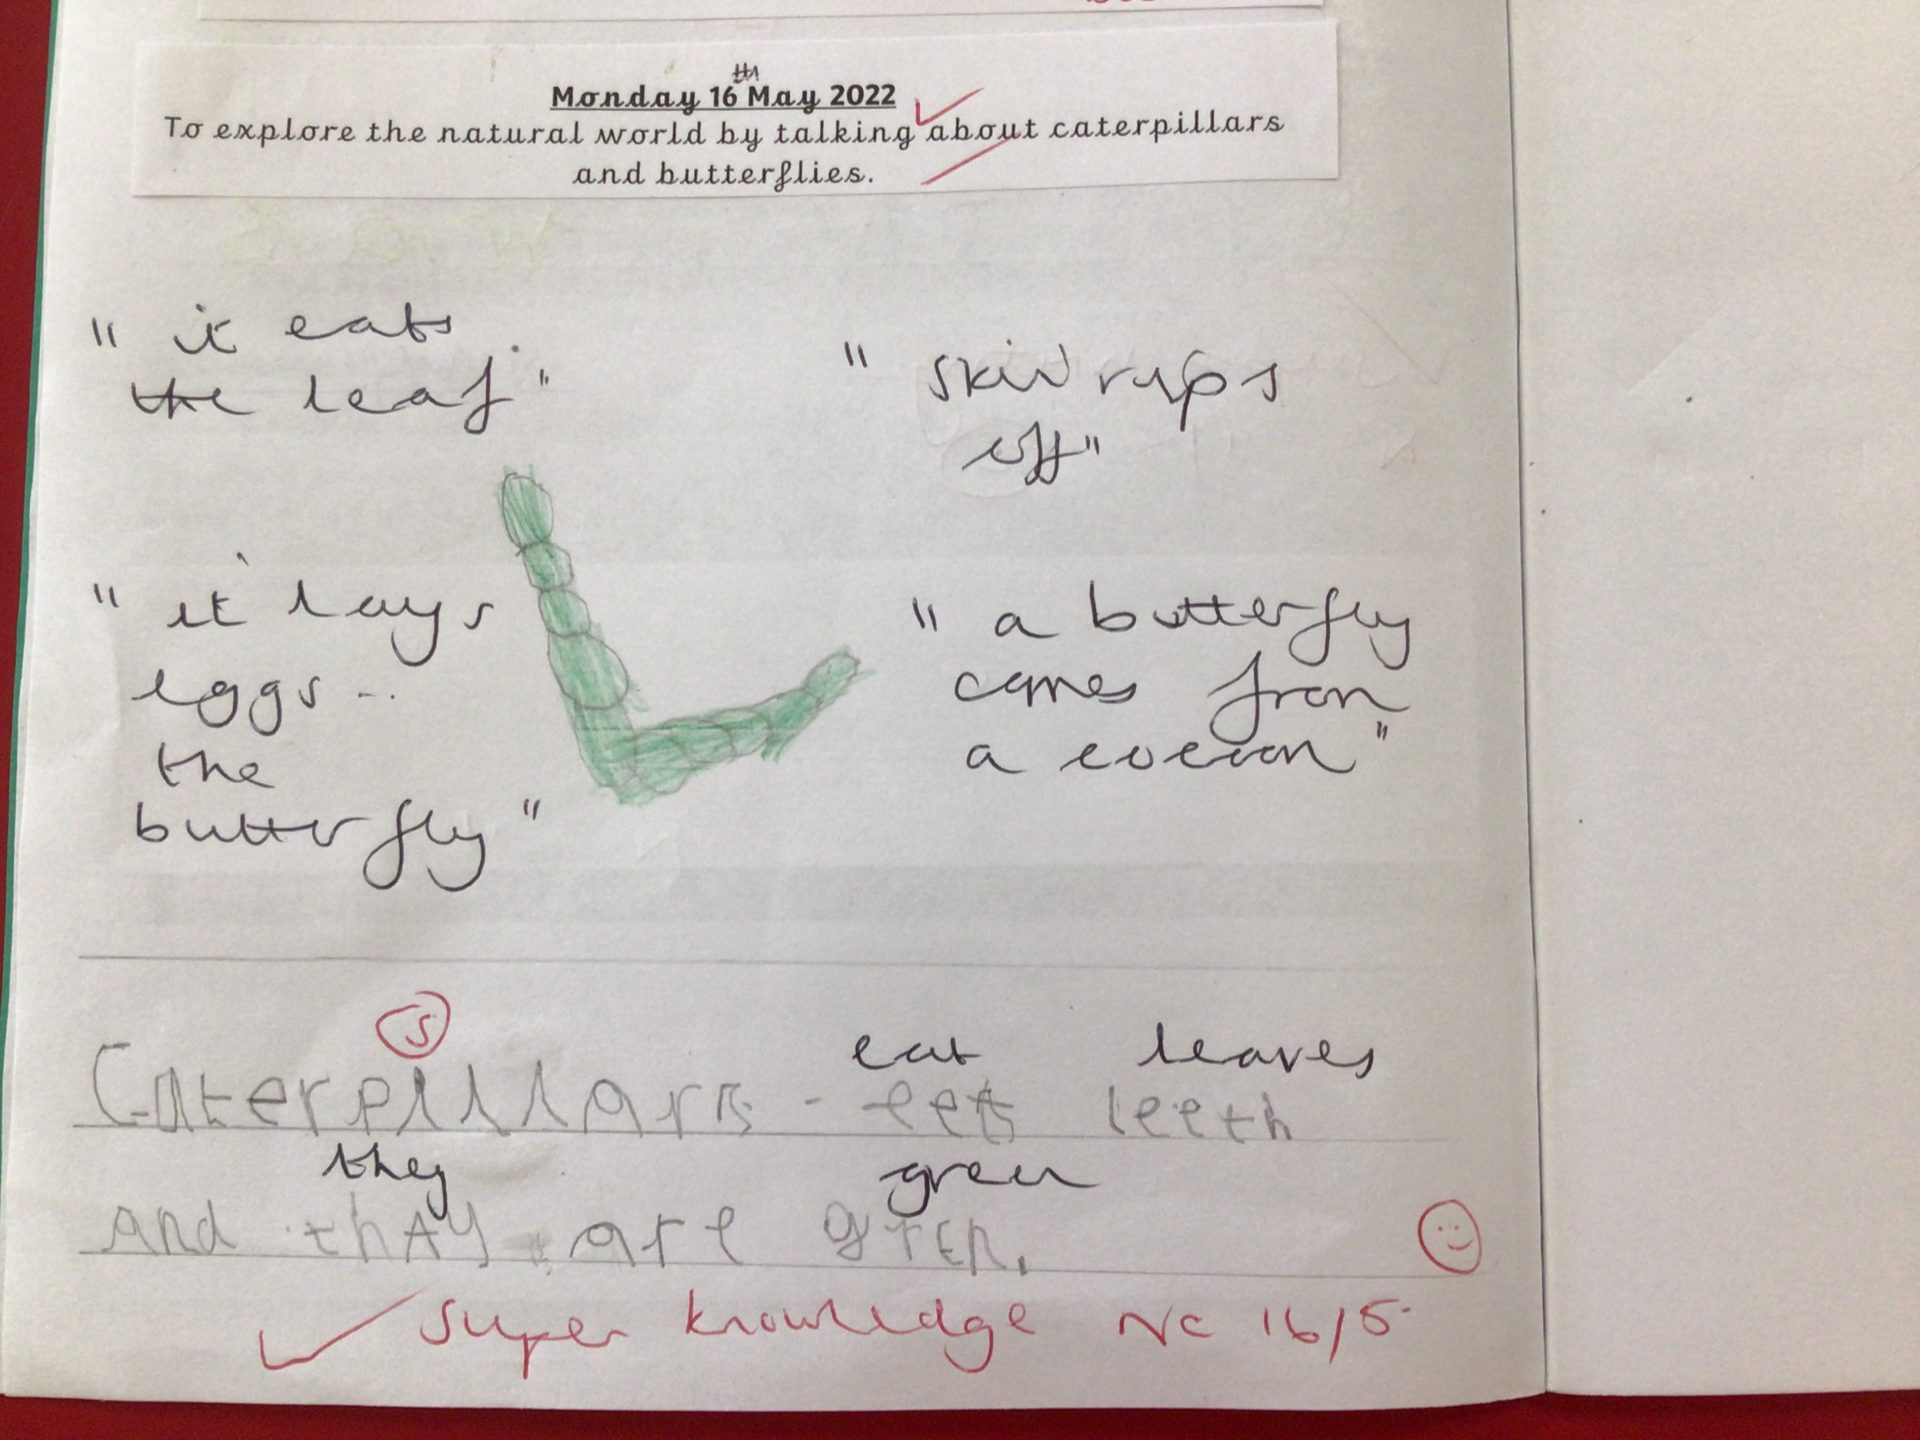 Monday 16th May 2022
To explore the natural world by talking about caterpillars
and butterflies.
" it eats
the leaf "
" skin rips
off "
" it lays
eggs ...
the
butterfly "
" a butterfly
comes from
a cocoon "
S
eat leaves
Caterpillars eets leeth
they green
and thay are gren.
✓ super knowledge NC 16/5